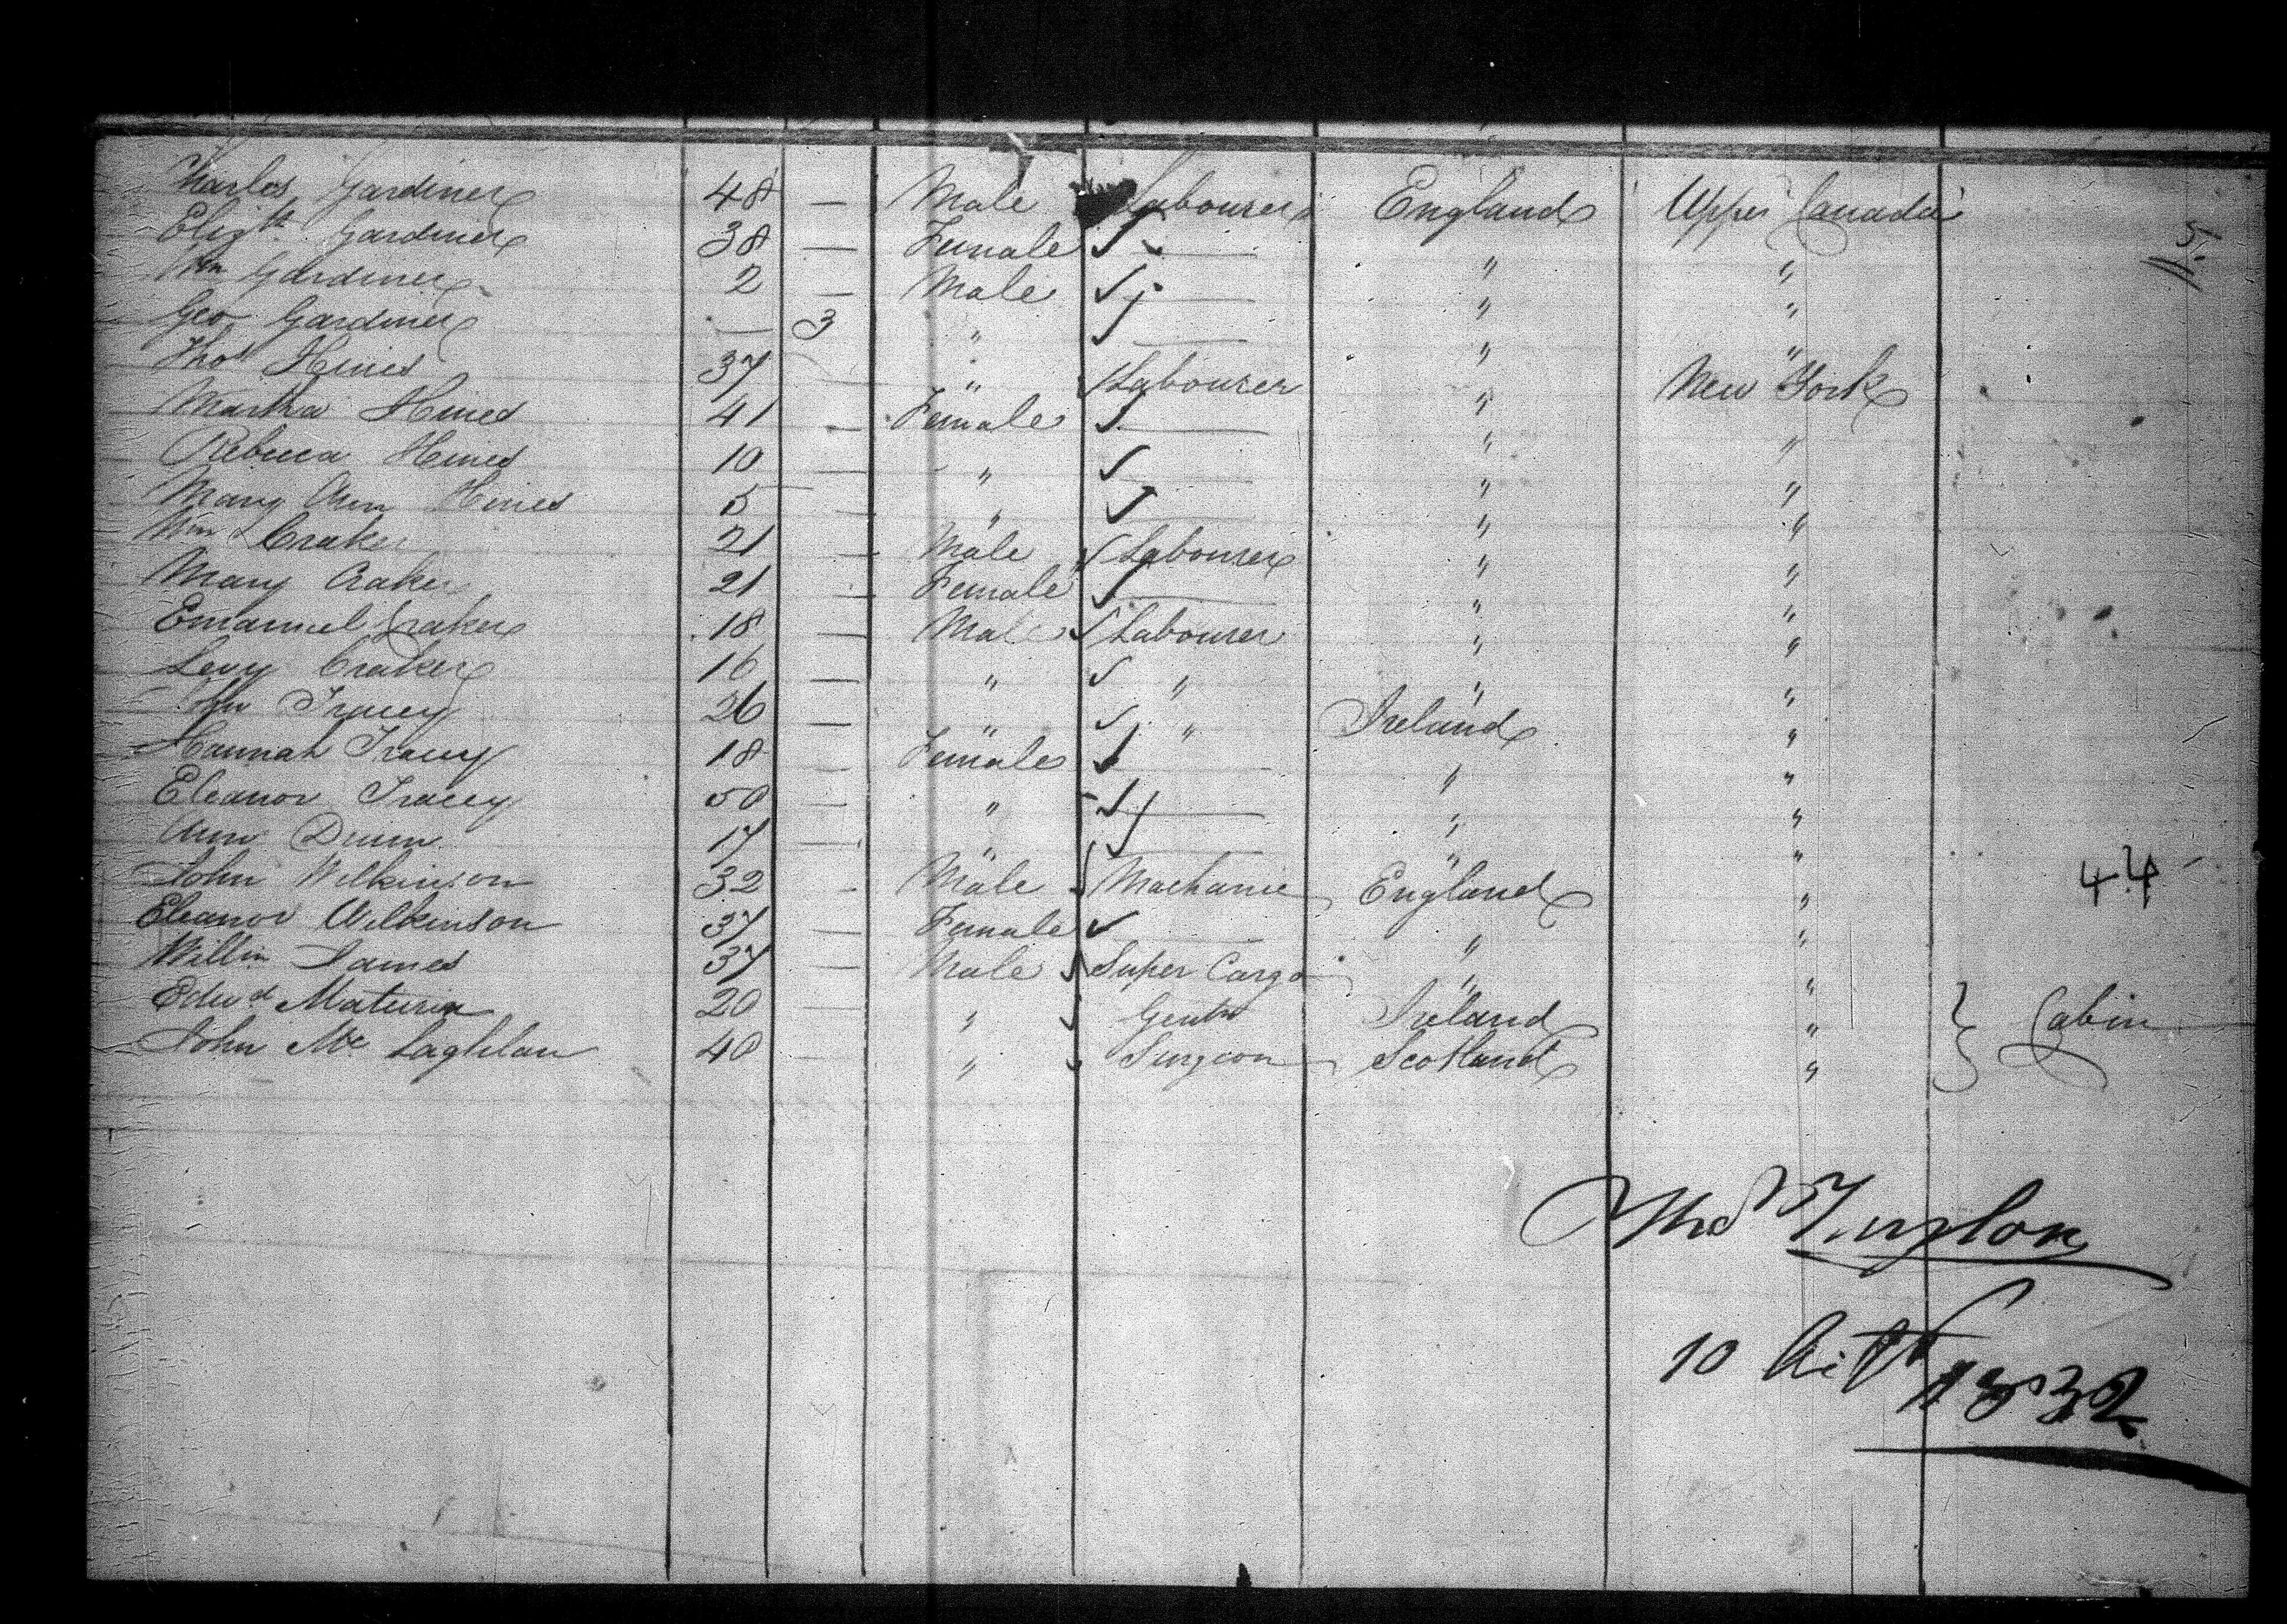 Charles Gardiner 48 — Male Labourer England Upper Canada
Elizth Gardiner 38 — Female — " "
Wm Gardiner 2 — Male — " "
Geo Gardiner — 3 " — " "
Thos Hines 37 — " Labourer " New York
Martha Hines 41 — Female — " "
Rebecca Hines 10 — " — " "
Mary Ann Hines 5 — " — " "
Wm Craker 21 — Male Labourer " "
Mary Craker 21 — Female — " "
Emanuel Craker 18 — Male Labourer " "
Levy Craker 16 — " " " "
John Tracey 26 — " " Ireland "
Hannah Tracey 18 — Female — " "
Eleanor Tracey 50 — " — " "
Ann Dunn 17 — " — " "
John Wilkinson 32 — Male Mechanic England " 44
Eleanor Wilkinson 37 — Female — " "
Willm James 37 — Male Super Cargo " "
Edwd Maturin 20 — " Gentn Ireland " Cabin
John Mc Laghlan 40 — " Surgeon Scotland "
Thos
10 1832